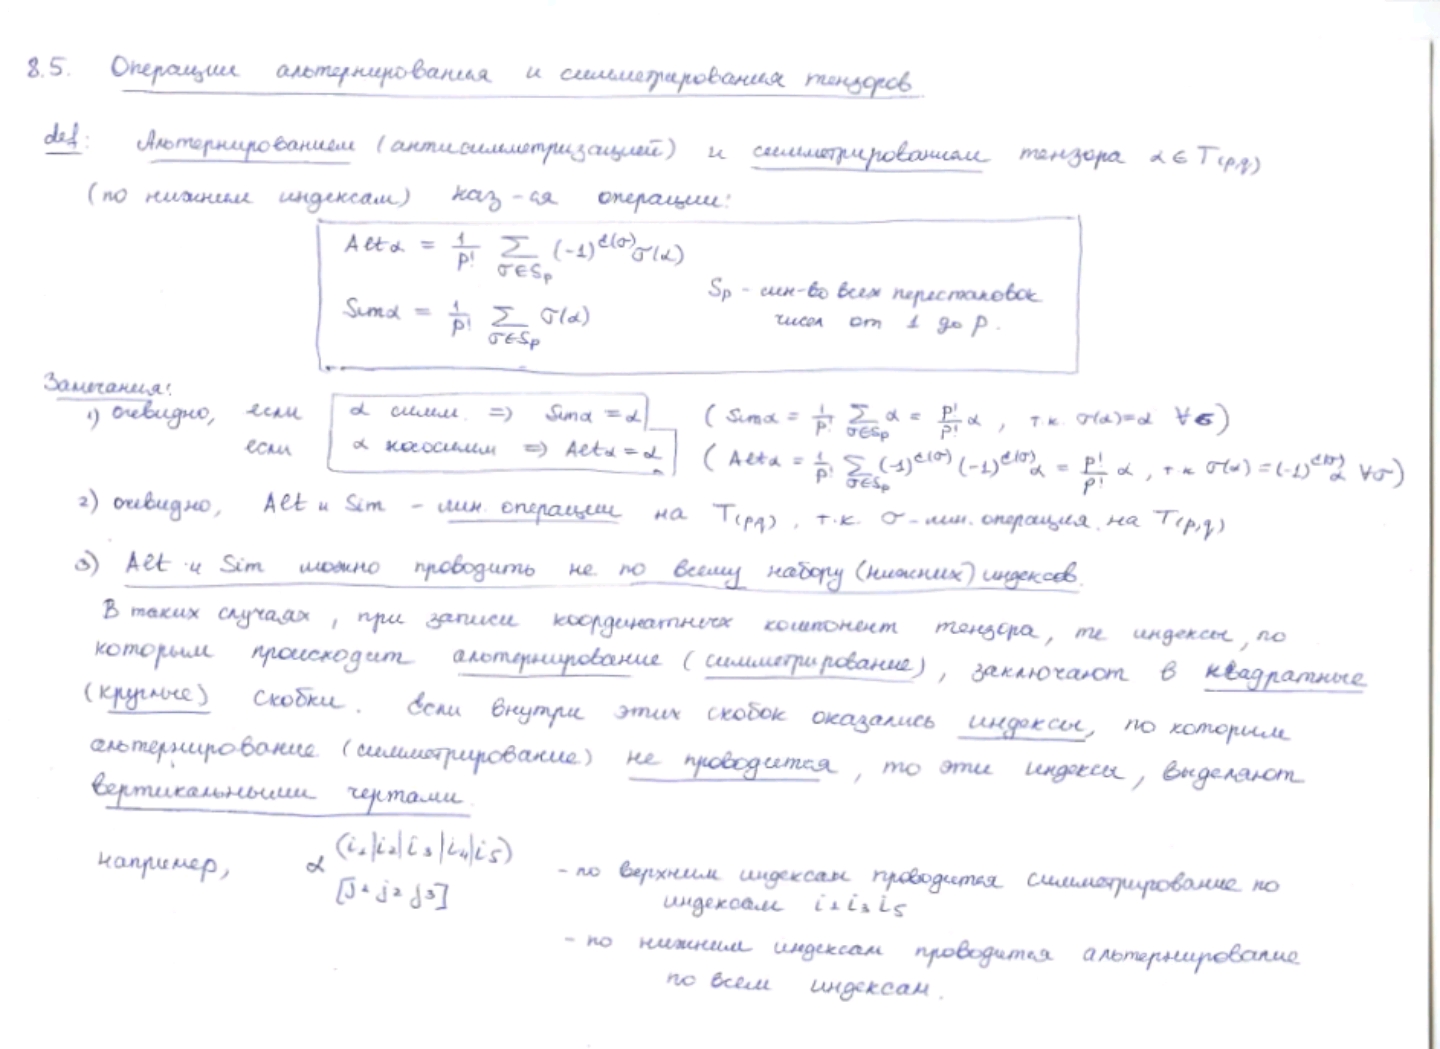 8.5. Операции альтернирования и симметрирования тензоров
def: Альтернированием (антисимметризацией) и симметрированием тензора α ∈ T(p,q)
(по нижним индексам) наз-ся операции:
Alt α = 1/p! ∑_{σ∈S_p} (-1)^{ε(σ)} σ(α)
S_p - мн-во всех перестановок
Sim α = 1/p! ∑_{σ∈S_p} σ(α)
чисел от 1 до p.
Замечания:
1) очевидно, если α симм. => Sim α = α ( Sim α = 1/p! ∑_{σ∈S_p} α = p!/p! α , т.к. σ(α)=α ∀σ)
если α кососимм => Alt α = α ( Alt α = 1/p! ∑_{σ∈S_p} (-1)^{ε(σ)} (-1)^{ε(σ)} α = p!/p! α , т.к σ(α) = (-1)^{ε(σ)} α ∀σ)
2) очевидно, Alt и Sim - лин. операции на T(p,q) , т.к. σ - лин. операция на T(p,q)
3) Alt и Sim можно проводить не по всему набору (нижних) индексов.
В таких случаях, при записи координатных компонент тензора, те индексы, по
которым происходит альтернирование (симметрирование), заключают в квадратные
(круглые) скобки. Если внутри этих скобок оказались индексы, по которым
альтернирование (симметрирование) не проводится, то эти индексы, выделяют
вертикальными чертами.
например, α^{(i₁|i₂|i₃|i₄|i₅)}_{[j₁ j₂ j₃]} - по верхним индексам проводится симметрирование по
индексам i₁ i₃ i₅
- по нижним индексам проводится альтернирование
по всем индексам.